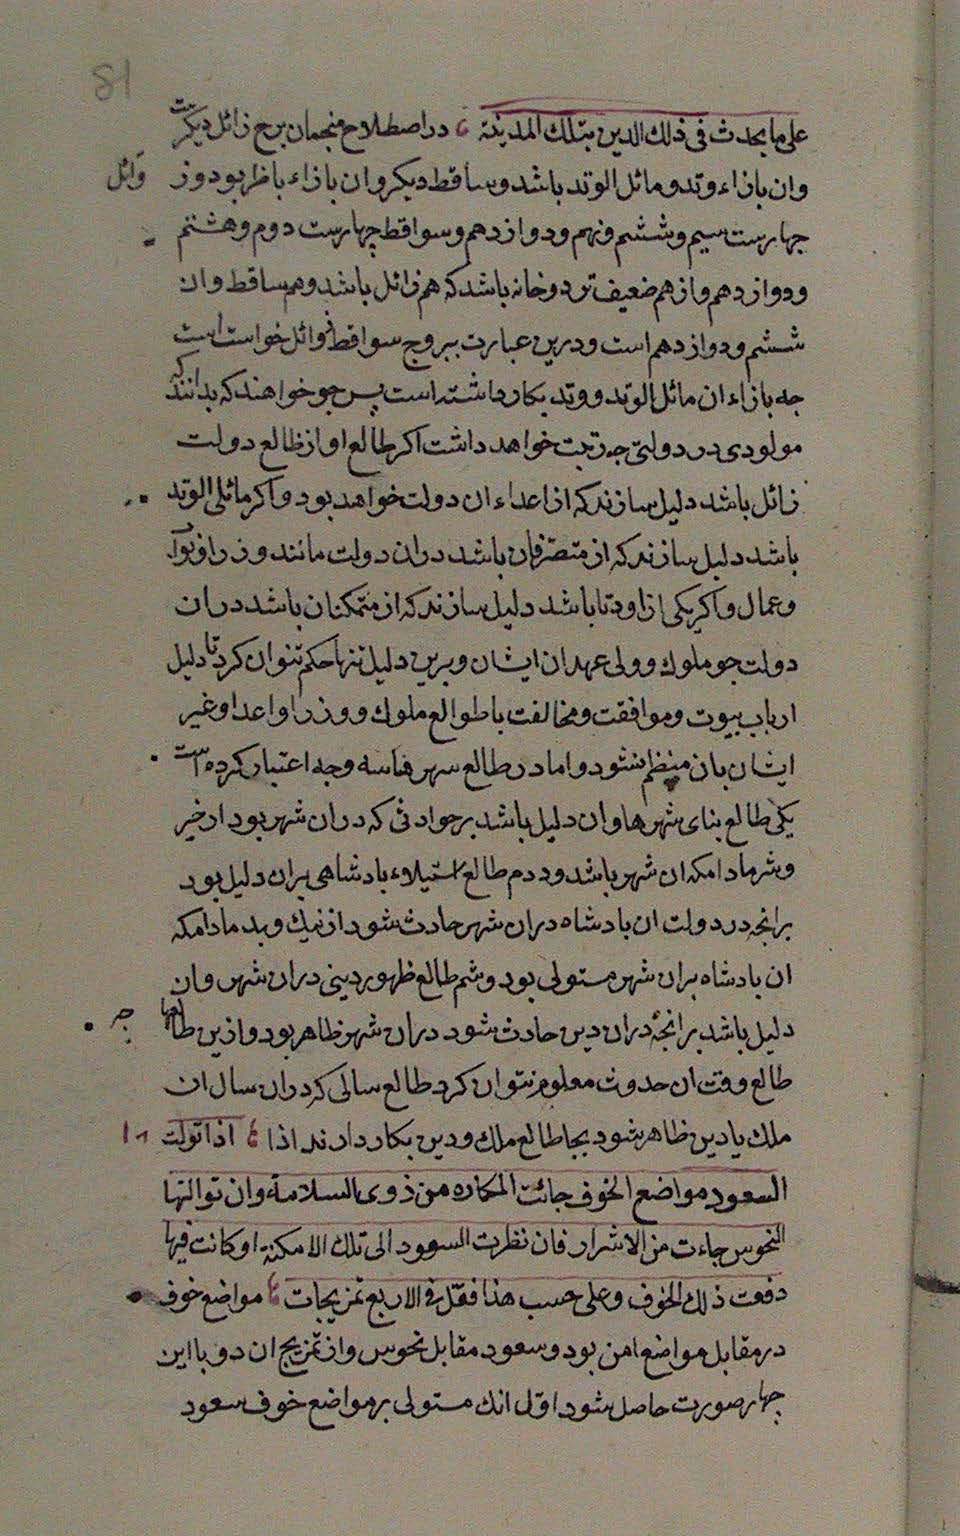 81
علی ما یحدث فی ذلك الدین بتلك المدینة در اصطلاح منجمان برج زائل دیکرست
وان بازاء وتد و مائل الوتد باشد و ساقط دیکر وان بازاء ناظر بود و ز وائل
چهارست سیم و ششم و نهم و دوازدهم و سواقط چهارست دوم و هشتم
و دوازدهم و ازهم ضعیف تر دو خانه باشد که هم زائل باشد و هم ساقط وان
ششم و دوازدهم است و درین عبارت ببروج سواقط زوائل خواست است
چه بازاء ان مائل الوتد و وتد بکار داشته است پس جو خواهند که بدانند که
مولودی در دولتی چه رتبت خواهد داشت اکر طالع او از طالع دولت
زائل باشد دلیل سازند که از اعداء ان دولت خواهد بود و اکر مائلی الوتد
باشد دلیل سازند که از متصرفان باشد دران دولت مانند وزرا و نواب
و عمال و اکر یکی از اوتاد باشد دلیل سازند که از متمکنان باشد دران
دولت جو ملوك و ولی عهدان ایشان و برین دلیل تنها حکم نتوان کرد تا دلیل
ارباب بیوت و موافقت و مخالفت با طوالع ملوك و وزرا و اعدا و غیر
ایشان بان منظم نشود و اما در طالع شهرها سه وجه اعتبار کرده است
یکی طالع بنای شهرها وان دلیل باشد بر حوادثی که دران شهر بود از خیر
و شر مادامکه ان شهر باشد و دوم طالع استیلاء بادشاهی بران دلیل بود
برانجه در دولت ان بادشاه دران شهر حادث شود از نیك و بد مادامکه
ان بادشاه بران شهر مستولی بود و سیم طالع ظهور دینی دران شهر وان
دلیل باشد برانجه دران دین حادث شود دران شهر ظاهر بود و ازین طالعها جر
طالع وقت ان حدوث معلوم نتوان کرد طالع سالی که دران سال ان
ملك یا دین ظاهر شود بجا طالع ملك و دین بکار دارند اذا اذا تولت
السعود مواضع الخوف جائت المکاره من ذوی السلامة وان توالتها
النحوس جاءت من الاشرار فان نظرت السعود الی تلك الامکنة او کانت فیها
دفعت ذلك الخوف وعلی حسب هذا فقل فی الاربع تمزیجات مواضع خوف
در مقابل مواضع امن بود و سعود مقابل نحوس و از تمزیج ان دو با این
چهار صورت حاصل شود اول انك مستولی بر مواضع خوف سعود